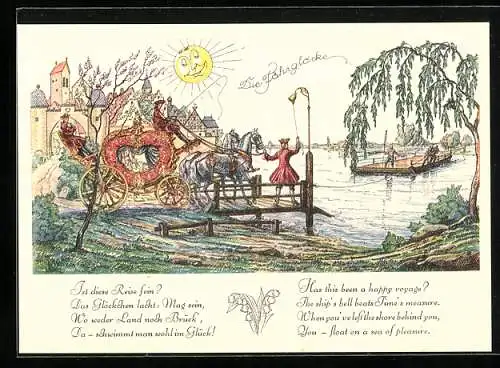 Die Fährglocke
Ist diese Reise fein?
Das Glöckchen lacht: Mag sein,
Wo weder Land noch Brück',
Da - schwimmt man wohl im Glück!
Has this been a happy voyage?
The ship's bell beats Time's measure.
When you've left the shore behind you,
You - float on a sea of pleasure.